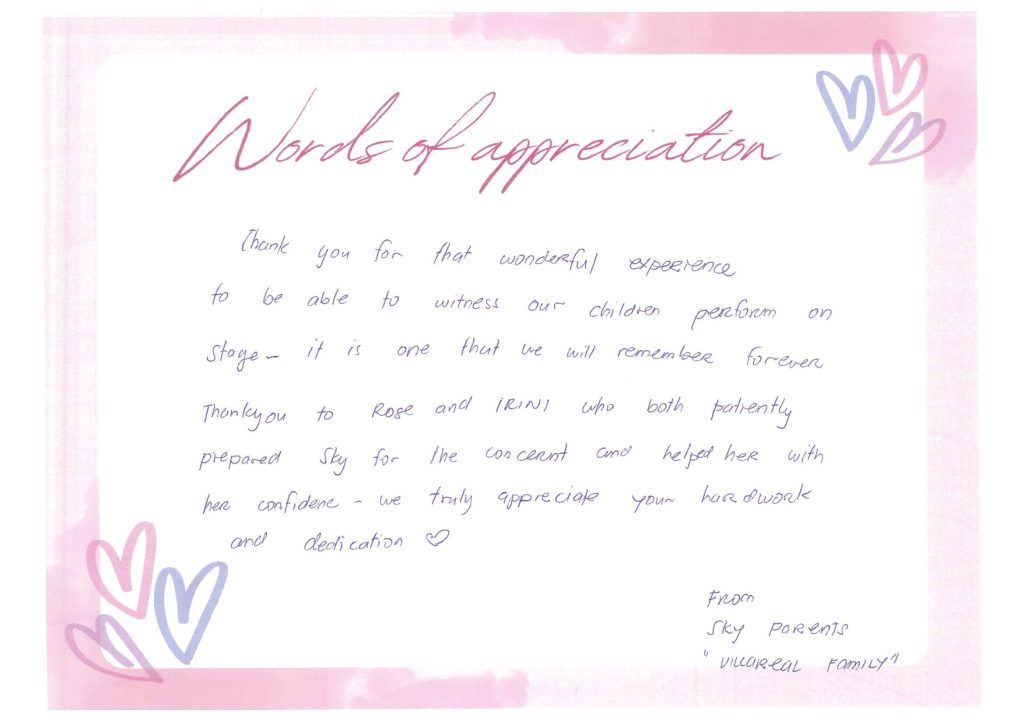 Words of appreciation
Thank you for that wonderful experience
to be able to witness our children perform on
stage - it is one that we will remember forever
Thankyou to Rose and IRINI who both patiently
prepared Sky for the concernt and helped her with
her confidenc - we truly appreciate your hardwork
and dedication ♡
From
Sky Parents
"Villareal Family"